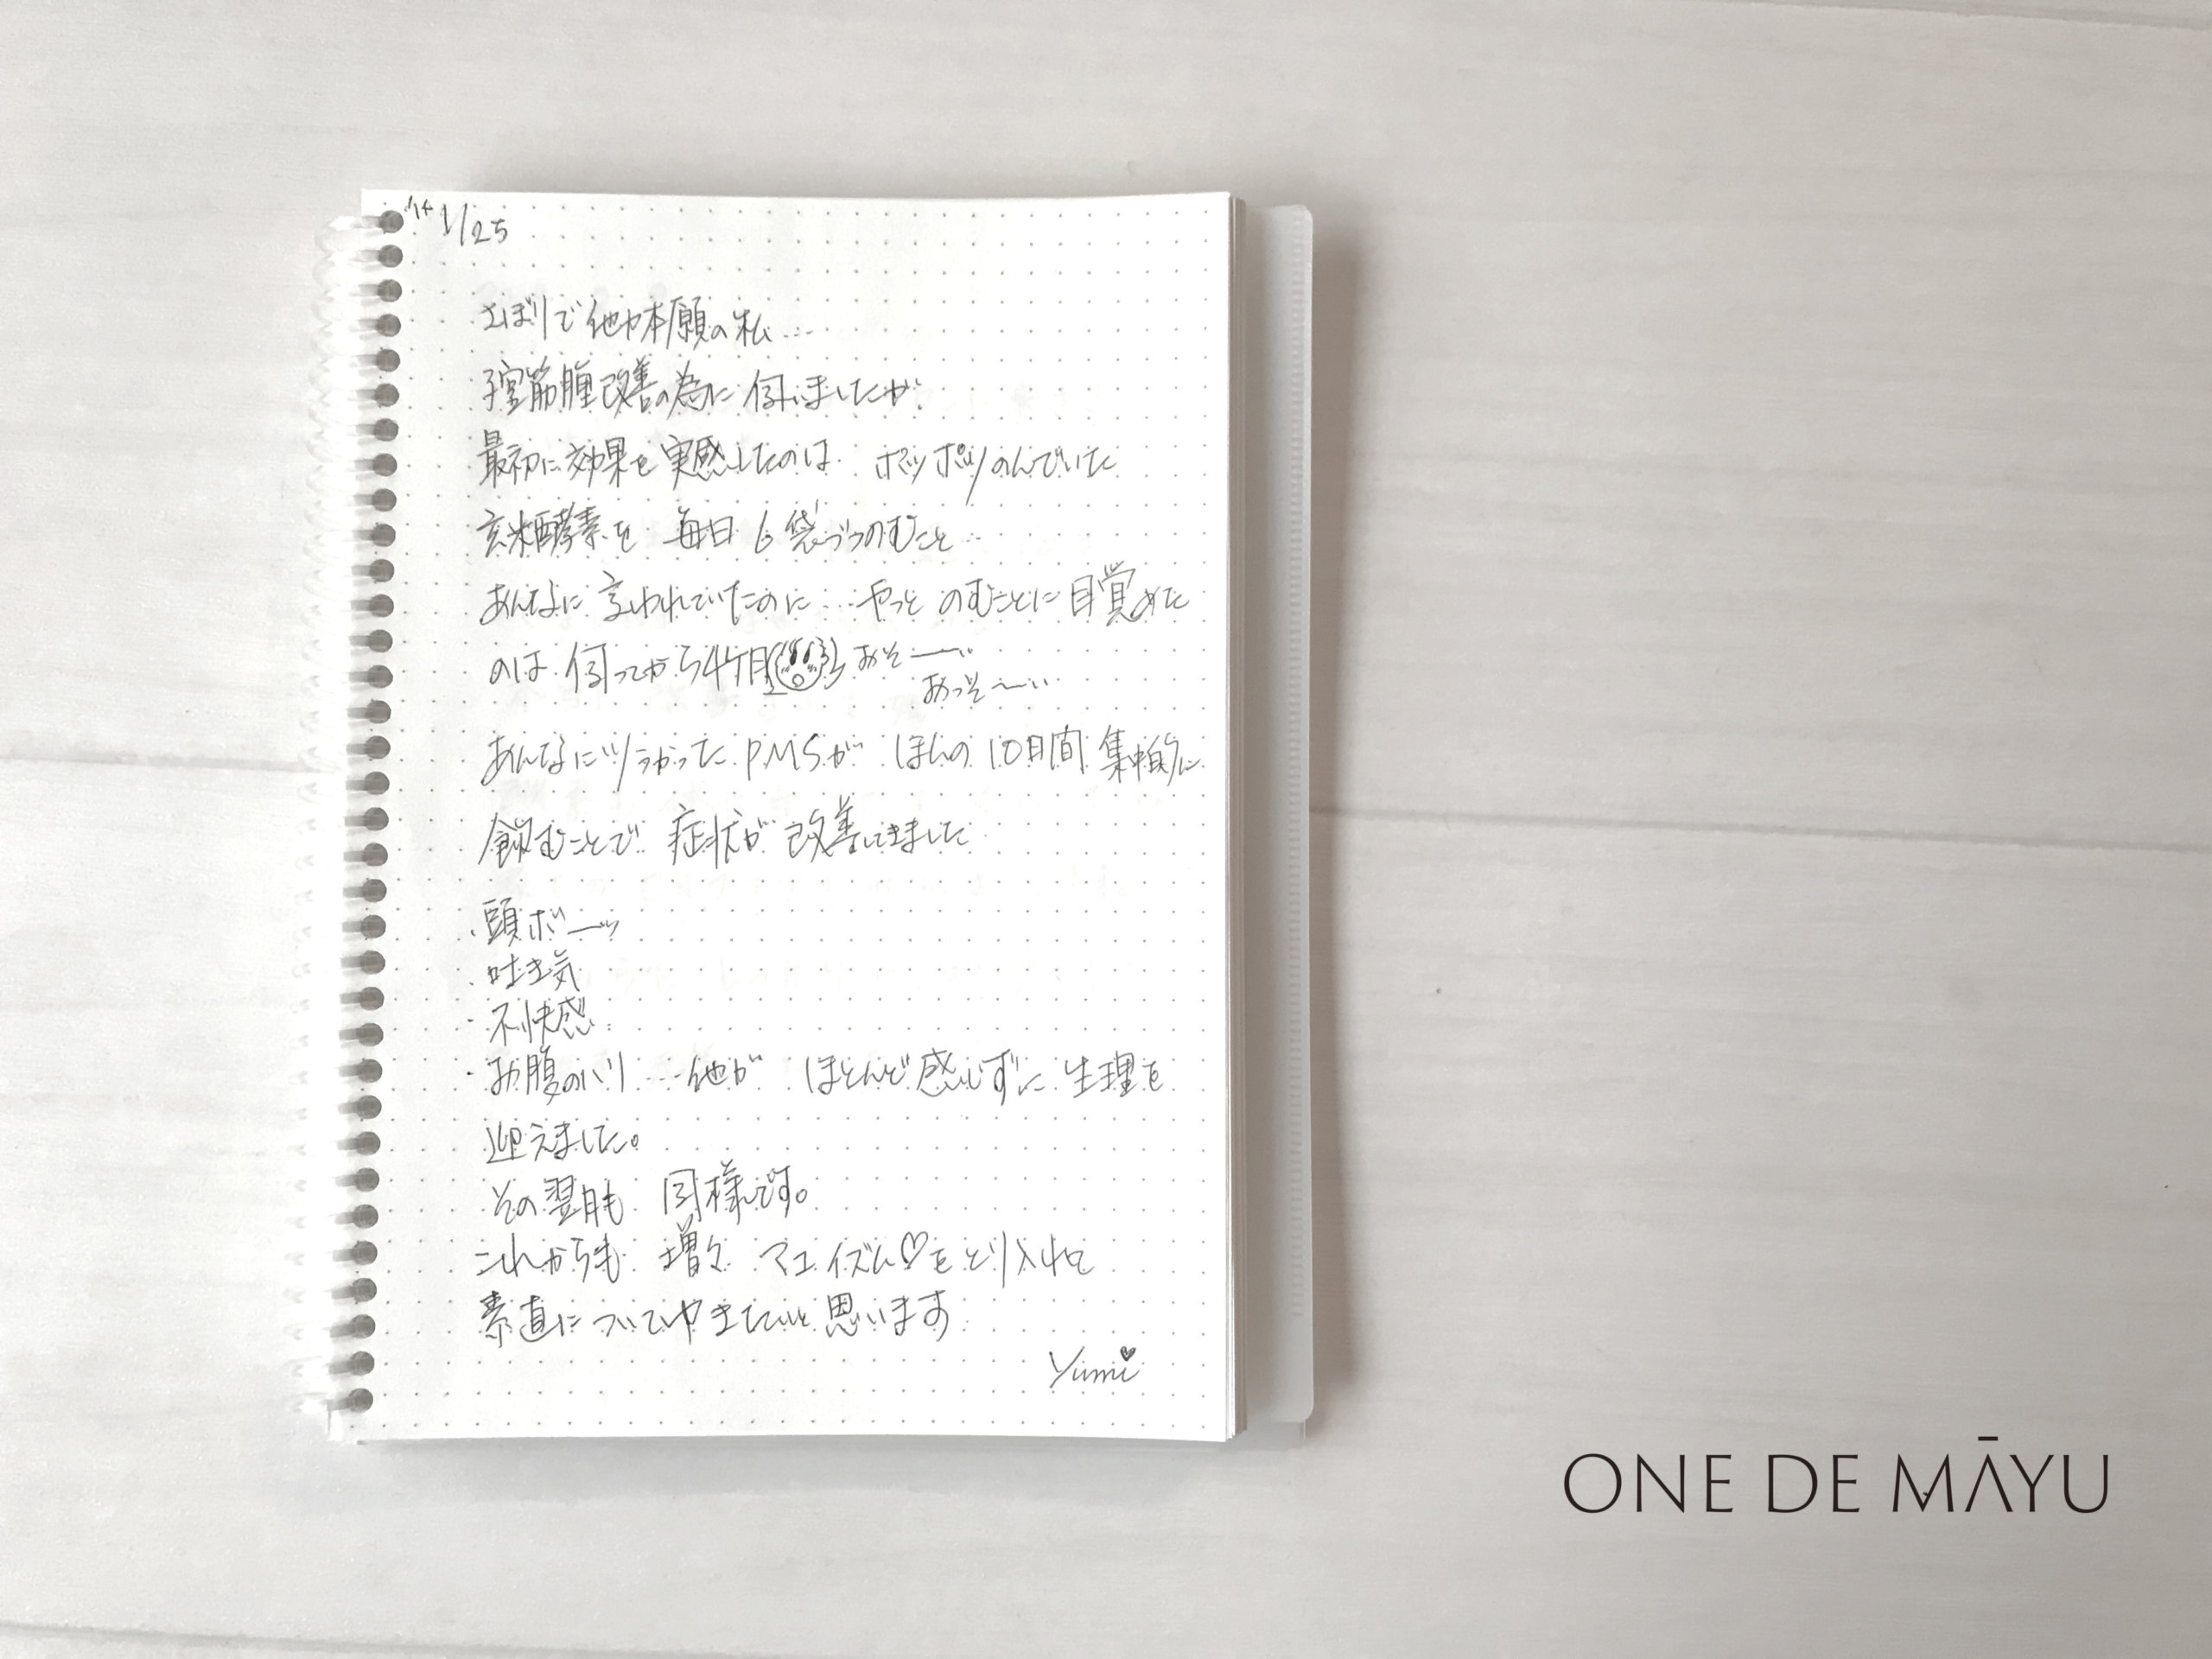 '14 1/25
さぼりで他力本願の私…
子宮筋腫改善の為に伺いましたが、
最初に効果を実感したのは ポツポツのんでいた
玄米酵素を 毎日 6袋づつのむこと…
あんなに言われていたのに…やっと のむことに目覚めた
のは 伺ってから4ケ月 おそーい
おっそーい
あんなにツラかったPMSが ほんの10日間 集中的に
飲むことで 症状が改善してきました
・頭ボーッ
・吐き気
・不快感
・お腹のハリ…他が ほとんど感じずに 生理を
迎えました。
その翌月も 同様です。
これからも 増々 マユイズム♡をとり入れて
素直についてゆきたいと思います
Yumi♥
ONE DE MĀYU